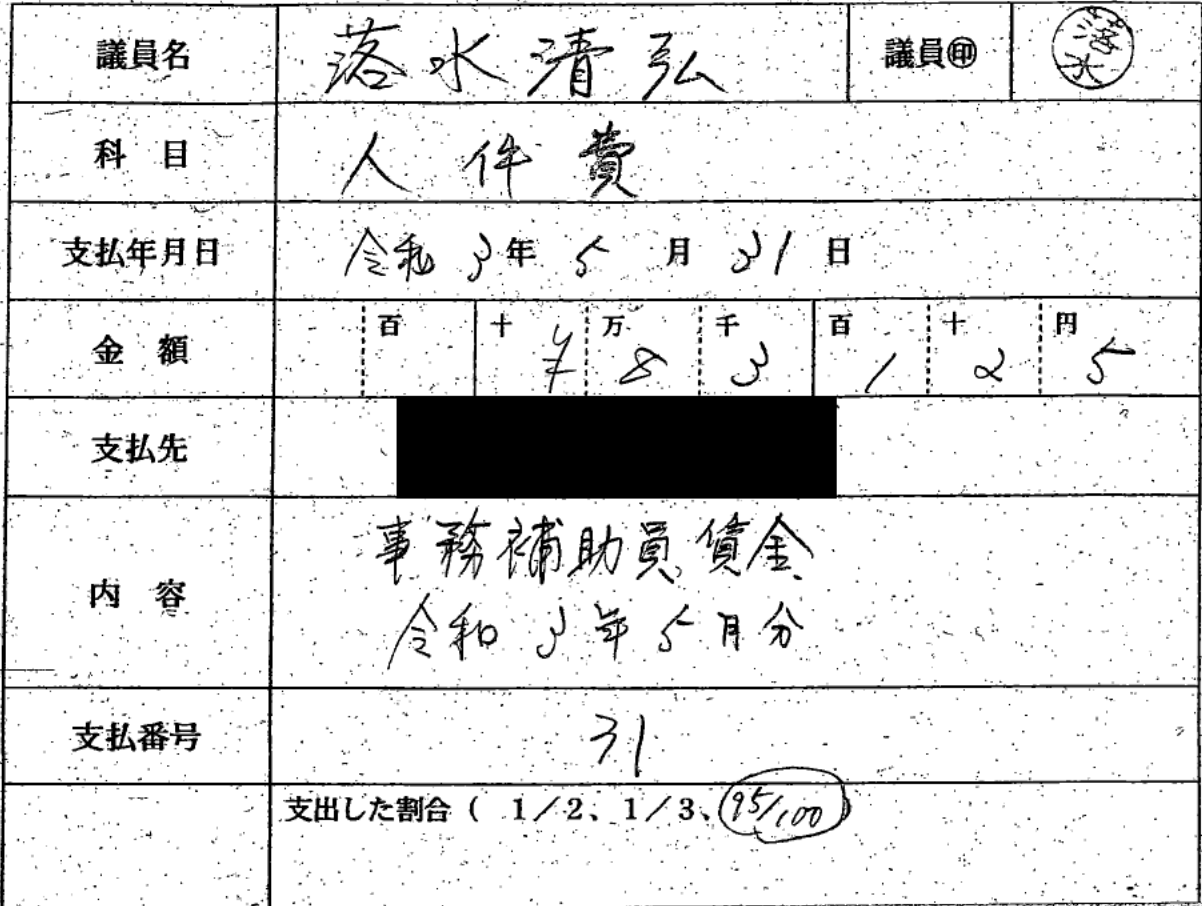 議員名 落水清弘 議員㊞ 落水
科 目 人件費
支払年月日 令和3年5月31日
金 額 百 十 万 千 百 十 円
¥83125
支払先
内 容 事務補助員賃金
令和3年5月分
支払番号 31
支出した割合( 1/2、1/3、95/100)